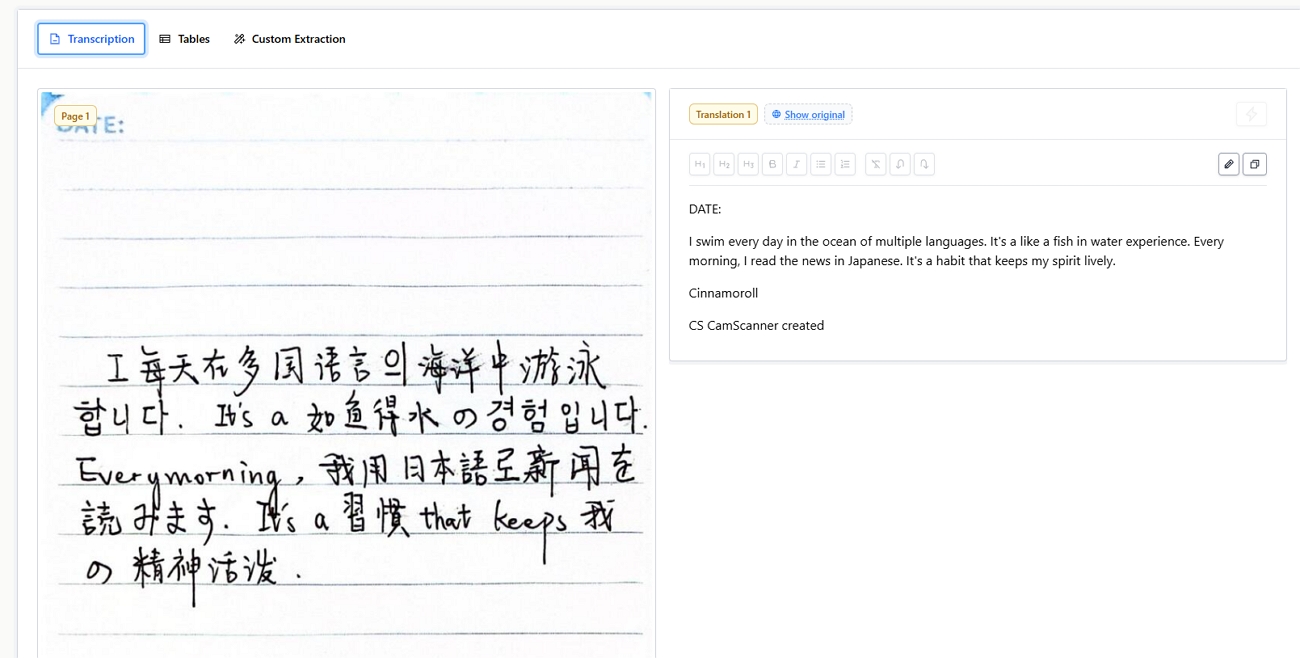 Transcription
Tables
Custom Extraction
Page 1
DATE:
I 每天在多国语言의海洋中游泳
합니다. It's a 如鱼得水の경험입니다.
Everymorning, 我用日本語로新闻を
読みます. It's a 習慣 that keeps 我
の精神活泼.
Translation 1
Show original
H1 H2 H3 B I
DATE:
I swim every day in the ocean of multiple languages. It's a like a fish in water experience. Every
morning, I read the news in Japanese. It's a habit that keeps my spirit lively.
Cinnamoroll
CS CamScanner created